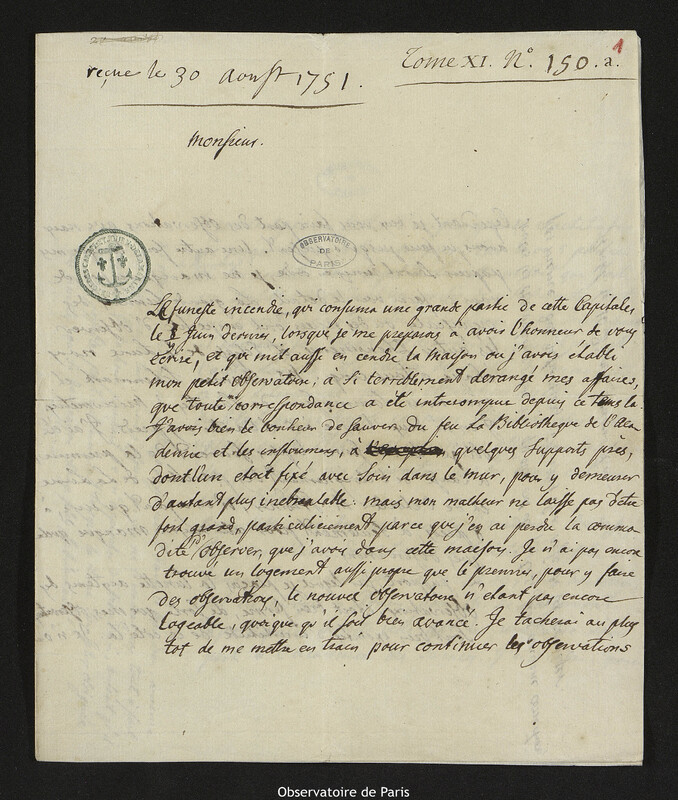 reçue le 30 Aoust 1751.
Tome XI. N.° 150. a.
1
Monsieur.
OBSERVATOIRE
DE
PARIS
Le funeste incendie, qui consuma une grande partie de cette Capitale
le Juin dernier, lorsque je me preparois à avoir l'honneur de vous
écrire, et qui mit aussi en cendre la maison ou j'avois établi
mon petit observatoire, à si terriblement derangé mes affaires,
que toute correspondance a été interrompue depuis ce tems la.
J'avois bien le bonheur de sauver du feu La Bibliotheque de l'Aca
demie et les instrumens, à quelques supports près,
dont l'un etoit fixé avec soin dans le mur, pour y demeurer
d'autant plus inebranlable. mais mon malheur ne laisse pas d'etre
fort grand, particulierement parce que j'en ai perdu la commo
dité d'observer, que j'avois dans cette maison. Je n'ai pas encore
trouvé un logement aussi propre que le premier, pour y faire
des observations, le nouvel observatoire n'etant pas encore
logeable, quoique qu'il soit bien avancé. Je tacherai au plus
tot de me mettre en train pour continuer les observations
Observatoire de Paris